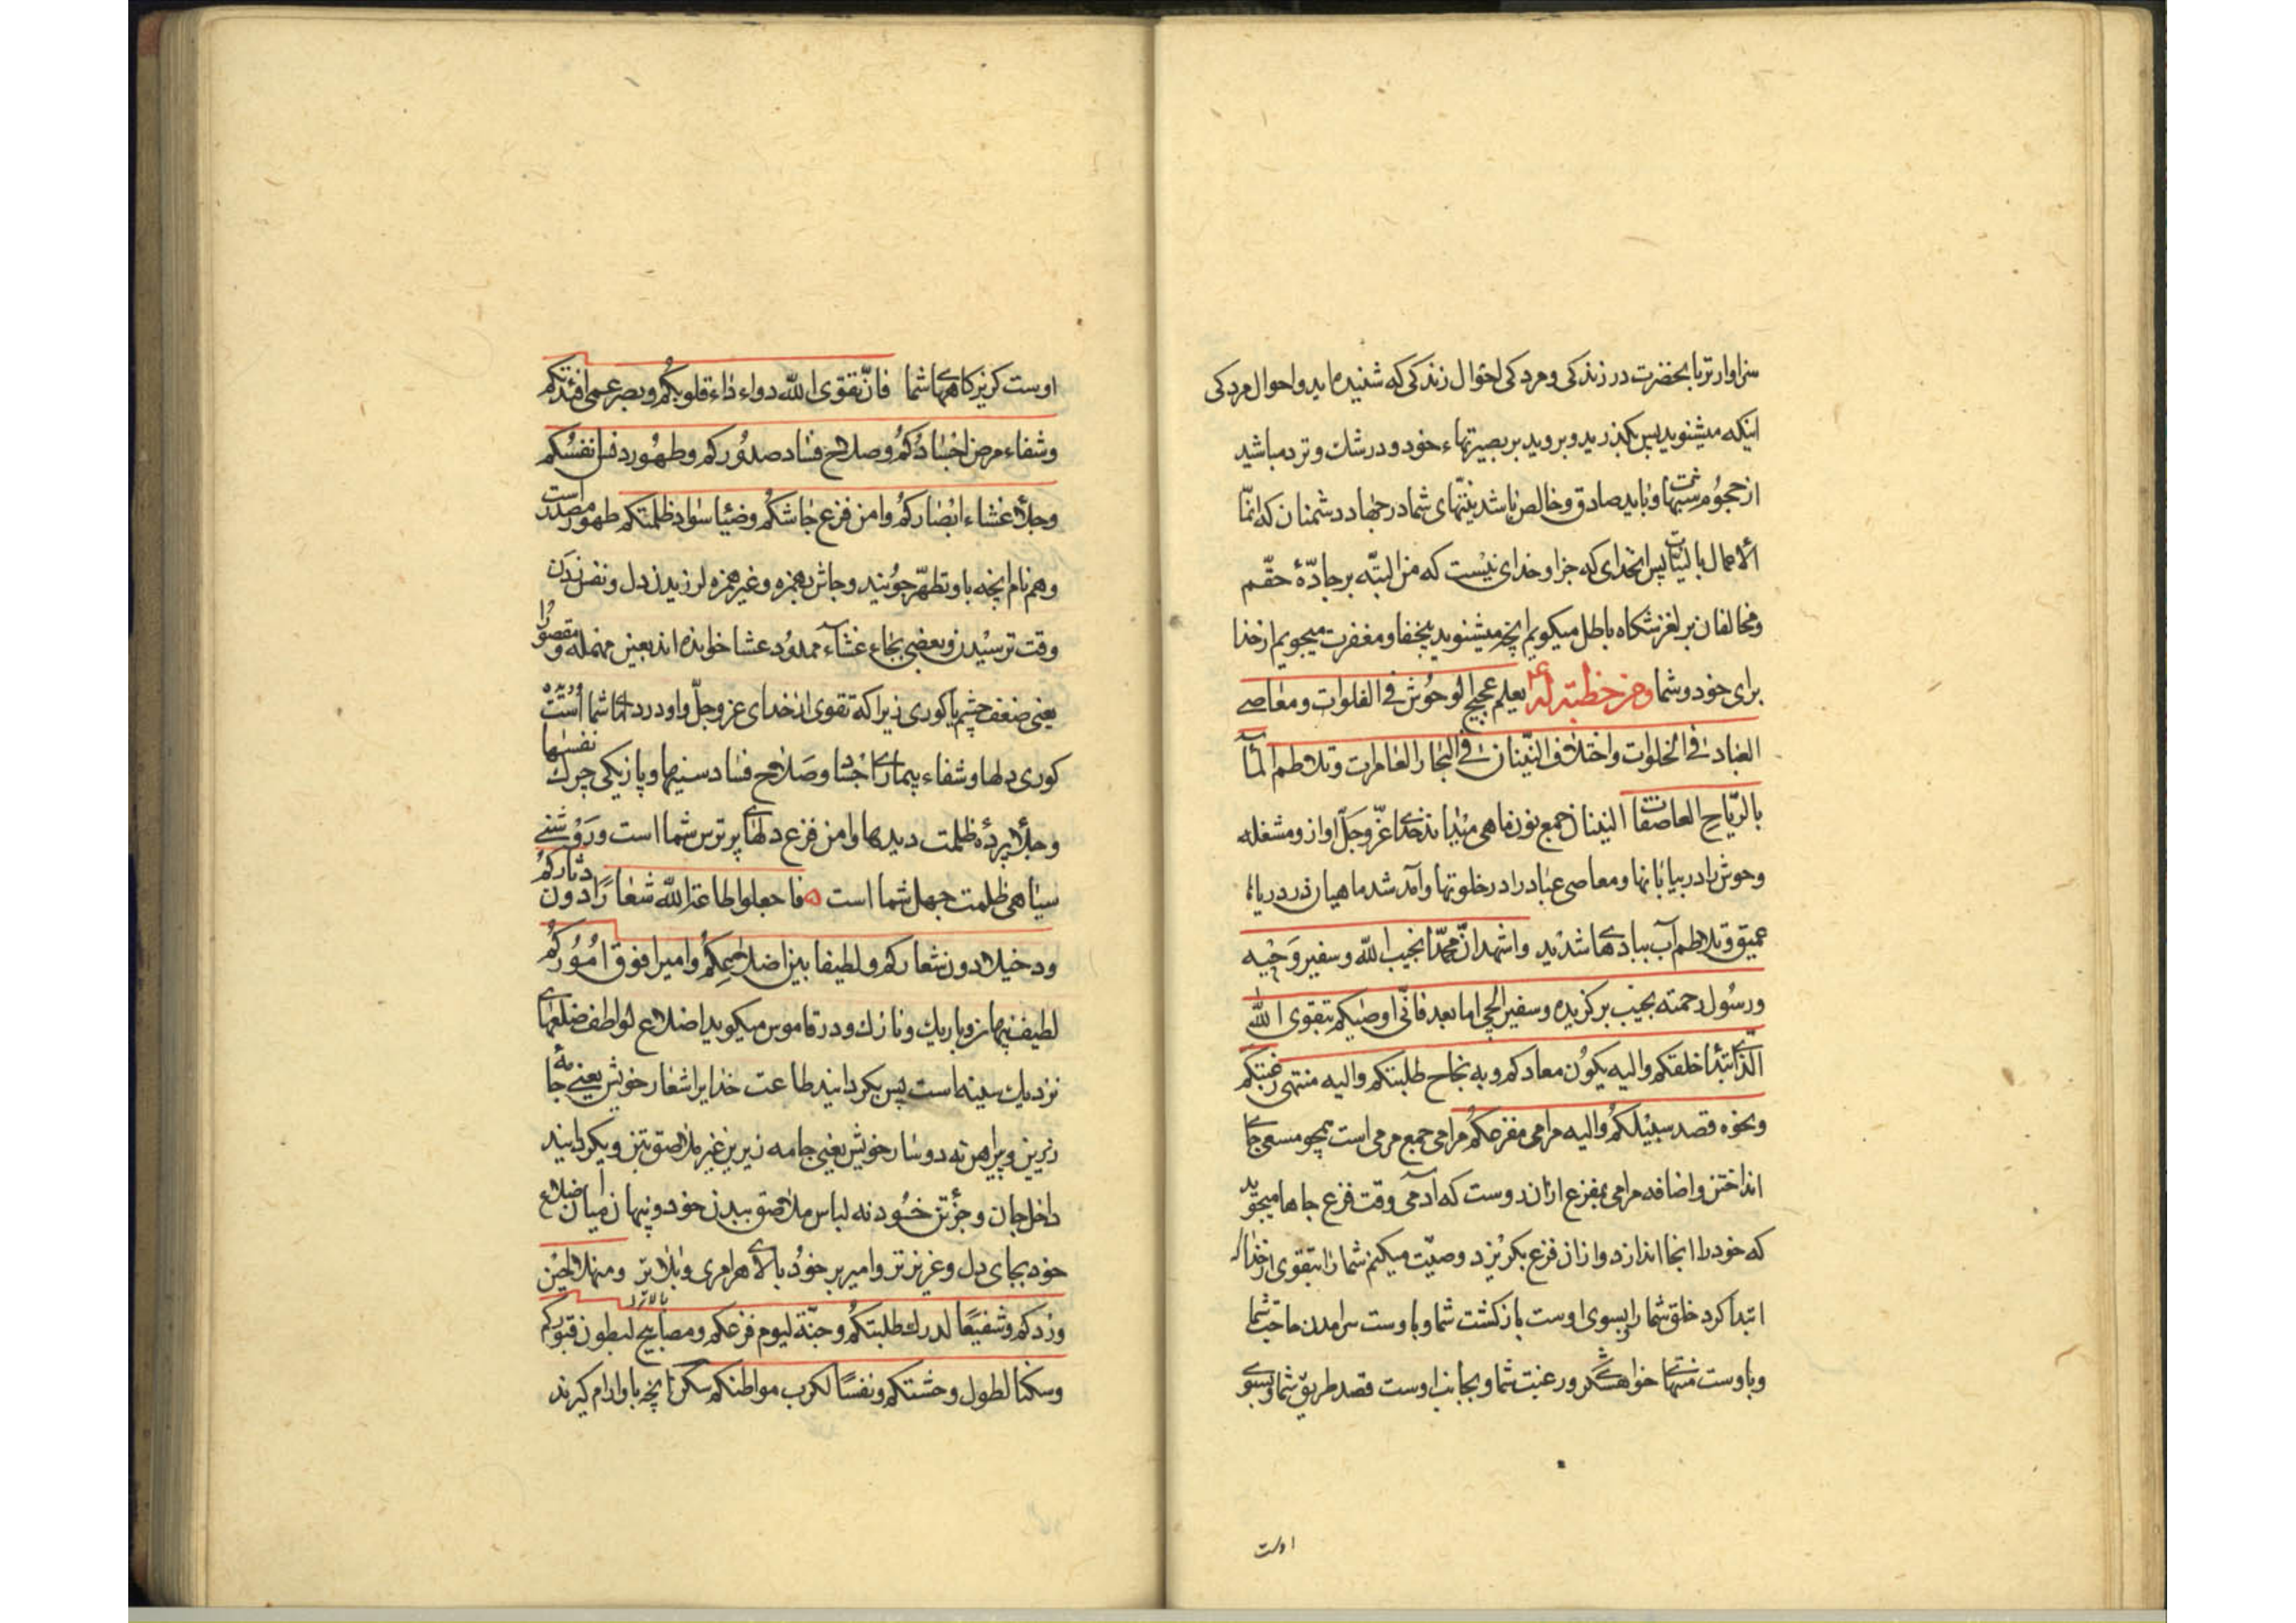 سزاوارتر باحضرت در زندکی و مردکی احوال زندکی که شنیده‌اید و احوال مردکی
اینکه میشنوید پس بکذرید و بروید بر بصیرتهاء خود و در شك و تردد مباشید
از هجوم شبهتها و باید صادق و خالص باشد نیّتهای شما در جهاد دشمنان که انّما
الاعمال بالنیّات پس بخدای که جز او خدای نیست که من البتّه بر جادّهٔ حقّم
و مخالفان بر لغزشکاه باطل میکویم آنچه میشنوید و مغفرت میجویم از خدا
برای خود و شما ومن خطبته له ع یعلم عجیج الوحوش فی الفلوات و معاصی
العباد فی الخلوات و اختلاف النّینان فی البحار الغامرات و تلاطم المآء
بالرّیاح العاصفات النینان جمع نون ماهی میداند خدای عزّ وجلّ اواز و مشغله
وحوش را در بیابانها و معاصی عباد را در خلوتها و آمد شد ماهیان در دریاها
عمیق و تلاطم آب ببادهای شدید واشهد انّ محمّدا نجیب الله و سفیر وحیه
و رسول رحمته نجیب برکزیده و سفیر ایلچی اما بعد فانّی اوصیکم بتقوی الله
الّذی ابتدأ خلقکم والیه یکون معادکم و به نجاح طلبتکم والیه منتهی رغبتکم
و نحوه قصد سبیلکم والیه مرامی مفزعکم مرامی جمع مرمی است همچو مسعی جای
انداختن و اضافه مرامی بمفزع از آن روست که آدمی وقت فزع جاها میجوید
که خود را آنجا اندازد و از ان فزع بکریزد وصیّت میکنم شما را بتقوی از خدا که
ابتدآ کرد خلق شما را و بسوی اوست بازکشت شما و باوست برامدن حاجت شما
و باوست منتهای خواهشکری و رغبت شما و بجانب اوست قصد طریق شما و بسوی
اوست
اوست کریزکاههای شما فانّ تقوی الله دواء داء قلوبکم و بصر عمی افئدتکم
و شفاء مرض اجسادکم و صلاح فساد صدورکم و طهور دنس انفسکم
و جلاء غشاء ابصارکم و امن فزع جاشکم و ضیاء سواد ظلمتکم طهور مصدر است
و هم نام آنچه باو تطهّر جویند و جاش بهمزه و غیر همزه لرزیدن دل و نفس زدن
وقت ترسیدن و بعضی بجاء غشآء ممدود عشا خوانده‌اند بعین مهمله و مقصور را
یعنی ضعف چشم یا کوری زیرا که تقوی از خدای عزّ وجلّ دواء درد دلهای شما است
کوری دلها و شفاء بیماری اجساد و صلاح فساد سینها و پاکیزکی چرك نفسها
و جلاء پردهٔ ظلمت دیدها و امن فزع دلهای پر ترس شما است و روشنی
سیاهی ظلمت جهل شما است فاجعلوا طاعة الله شعارًا دون دثارکم
و دخیلا دون شعارکم و لطیفا بین اضلاعکم و امیرا فوق امورکم
لطیف پنهان و باریك و نازك و در قاموس میکوید اضلاع لواطف ضلعهای
نزدیك سینه است پس بکردانید طاعت خدایرا شعار خویش یعنی جامهٔ
زیرین و پیراهن نه دوثار خویش یعنی جامه زیرین غیر ملاصق بتن و بکردانید
داخل جان و جزء تن خود نه لباس ملاصق ببدن خود و پنهان میان اضلاع
خود بجای دل و عزیزتر و امیر بر خود بالای هر امری و بالاتر و منهلا لحین
وردکم و شفیعًا لدرك طلبتکم و جنّة لیوم فزعکم و مصابیح لبطون قبورکم
و سکنا لطول وحشتکم و نفسًا لکرب مواطنکم سکن آنچه باو ارام کیرند